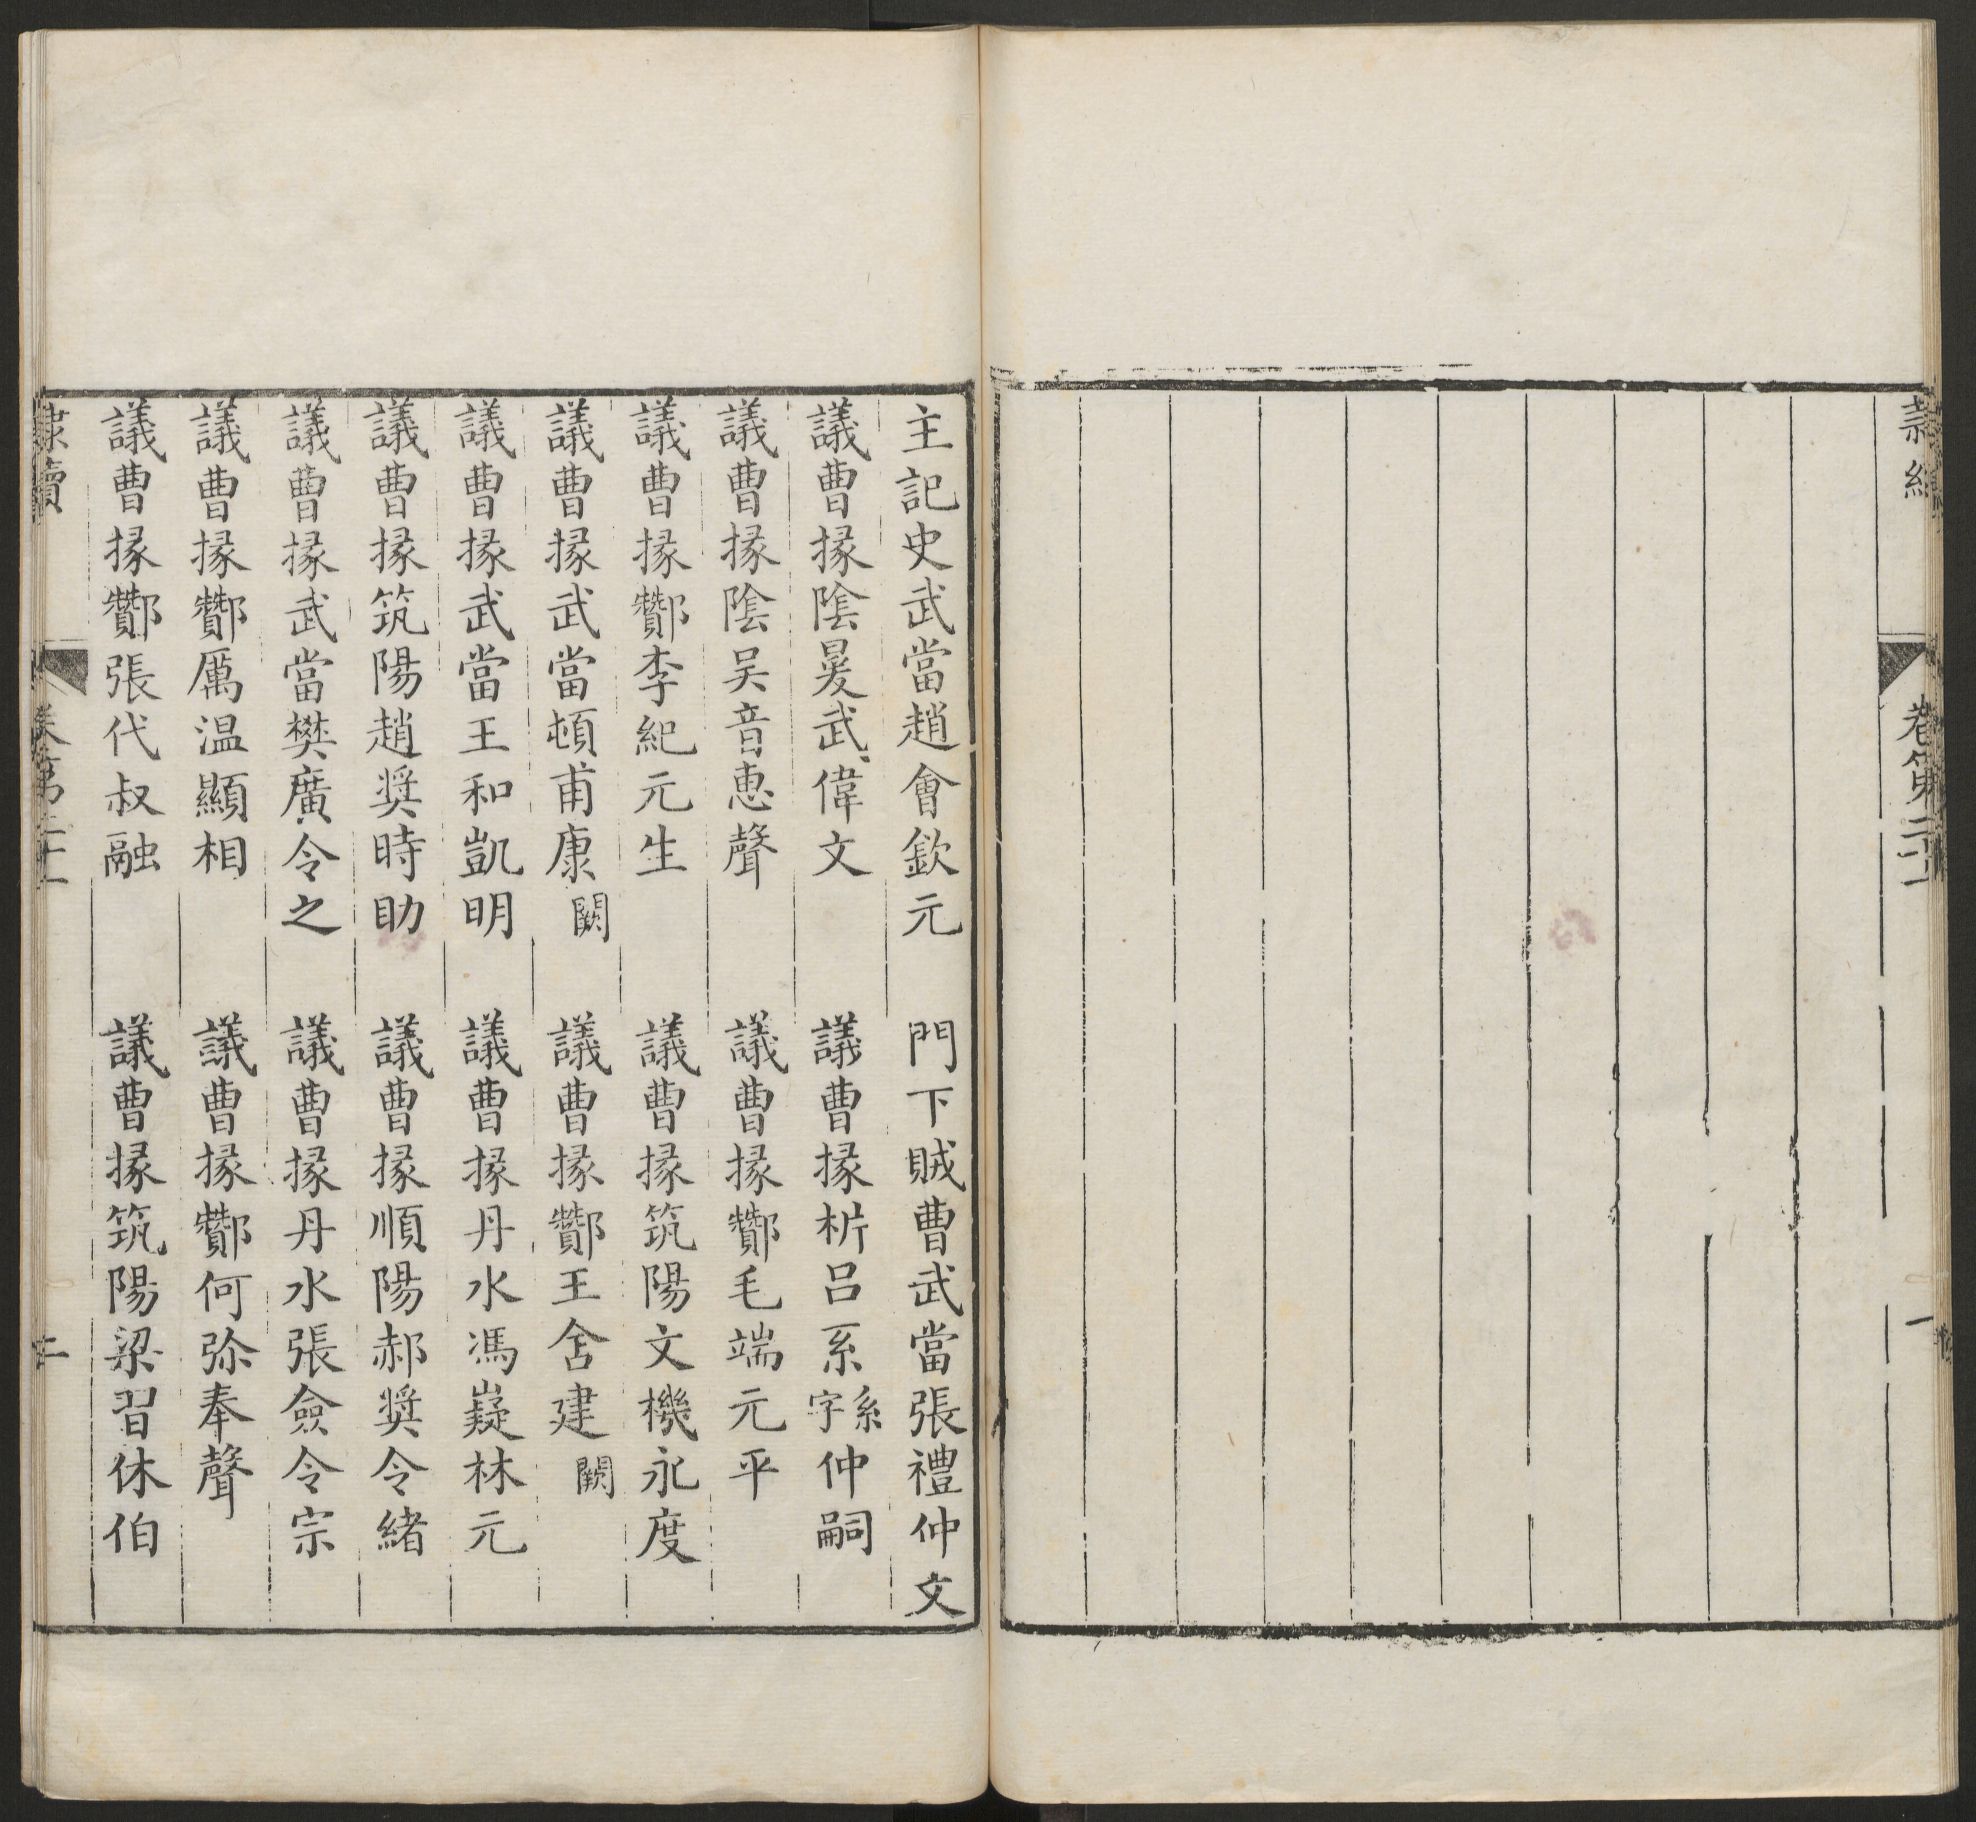 卷第二十一
一
主記史武當趙會欽元　門下賊曹武當張禮仲文
議曹掾陰晏武偉文　議曹掾析呂系系字仲嗣
議曹掾陰吴音惠聲　議曹掾酇毛端元平
議曹掾酇李紀元生　議曹掾筑陽文機永度
議曹掾武當頓甫康闕　議曹掾酇王舍建闕
議曹掾武當王和凱明　議曹掾丹水馮嶷林元
議曹掾筑陽趙奨時助　議曹掾順陽郝奨令緒
議曹掾武當樊廣令之　議曹掾丹水張儉令宗
議曹掾酇厲温顯相　議曹掾酇何弥奉聲
議曹掾酇張代叔融　議曹掾筑陽梁習休伯
隸續
卷第二十一
二